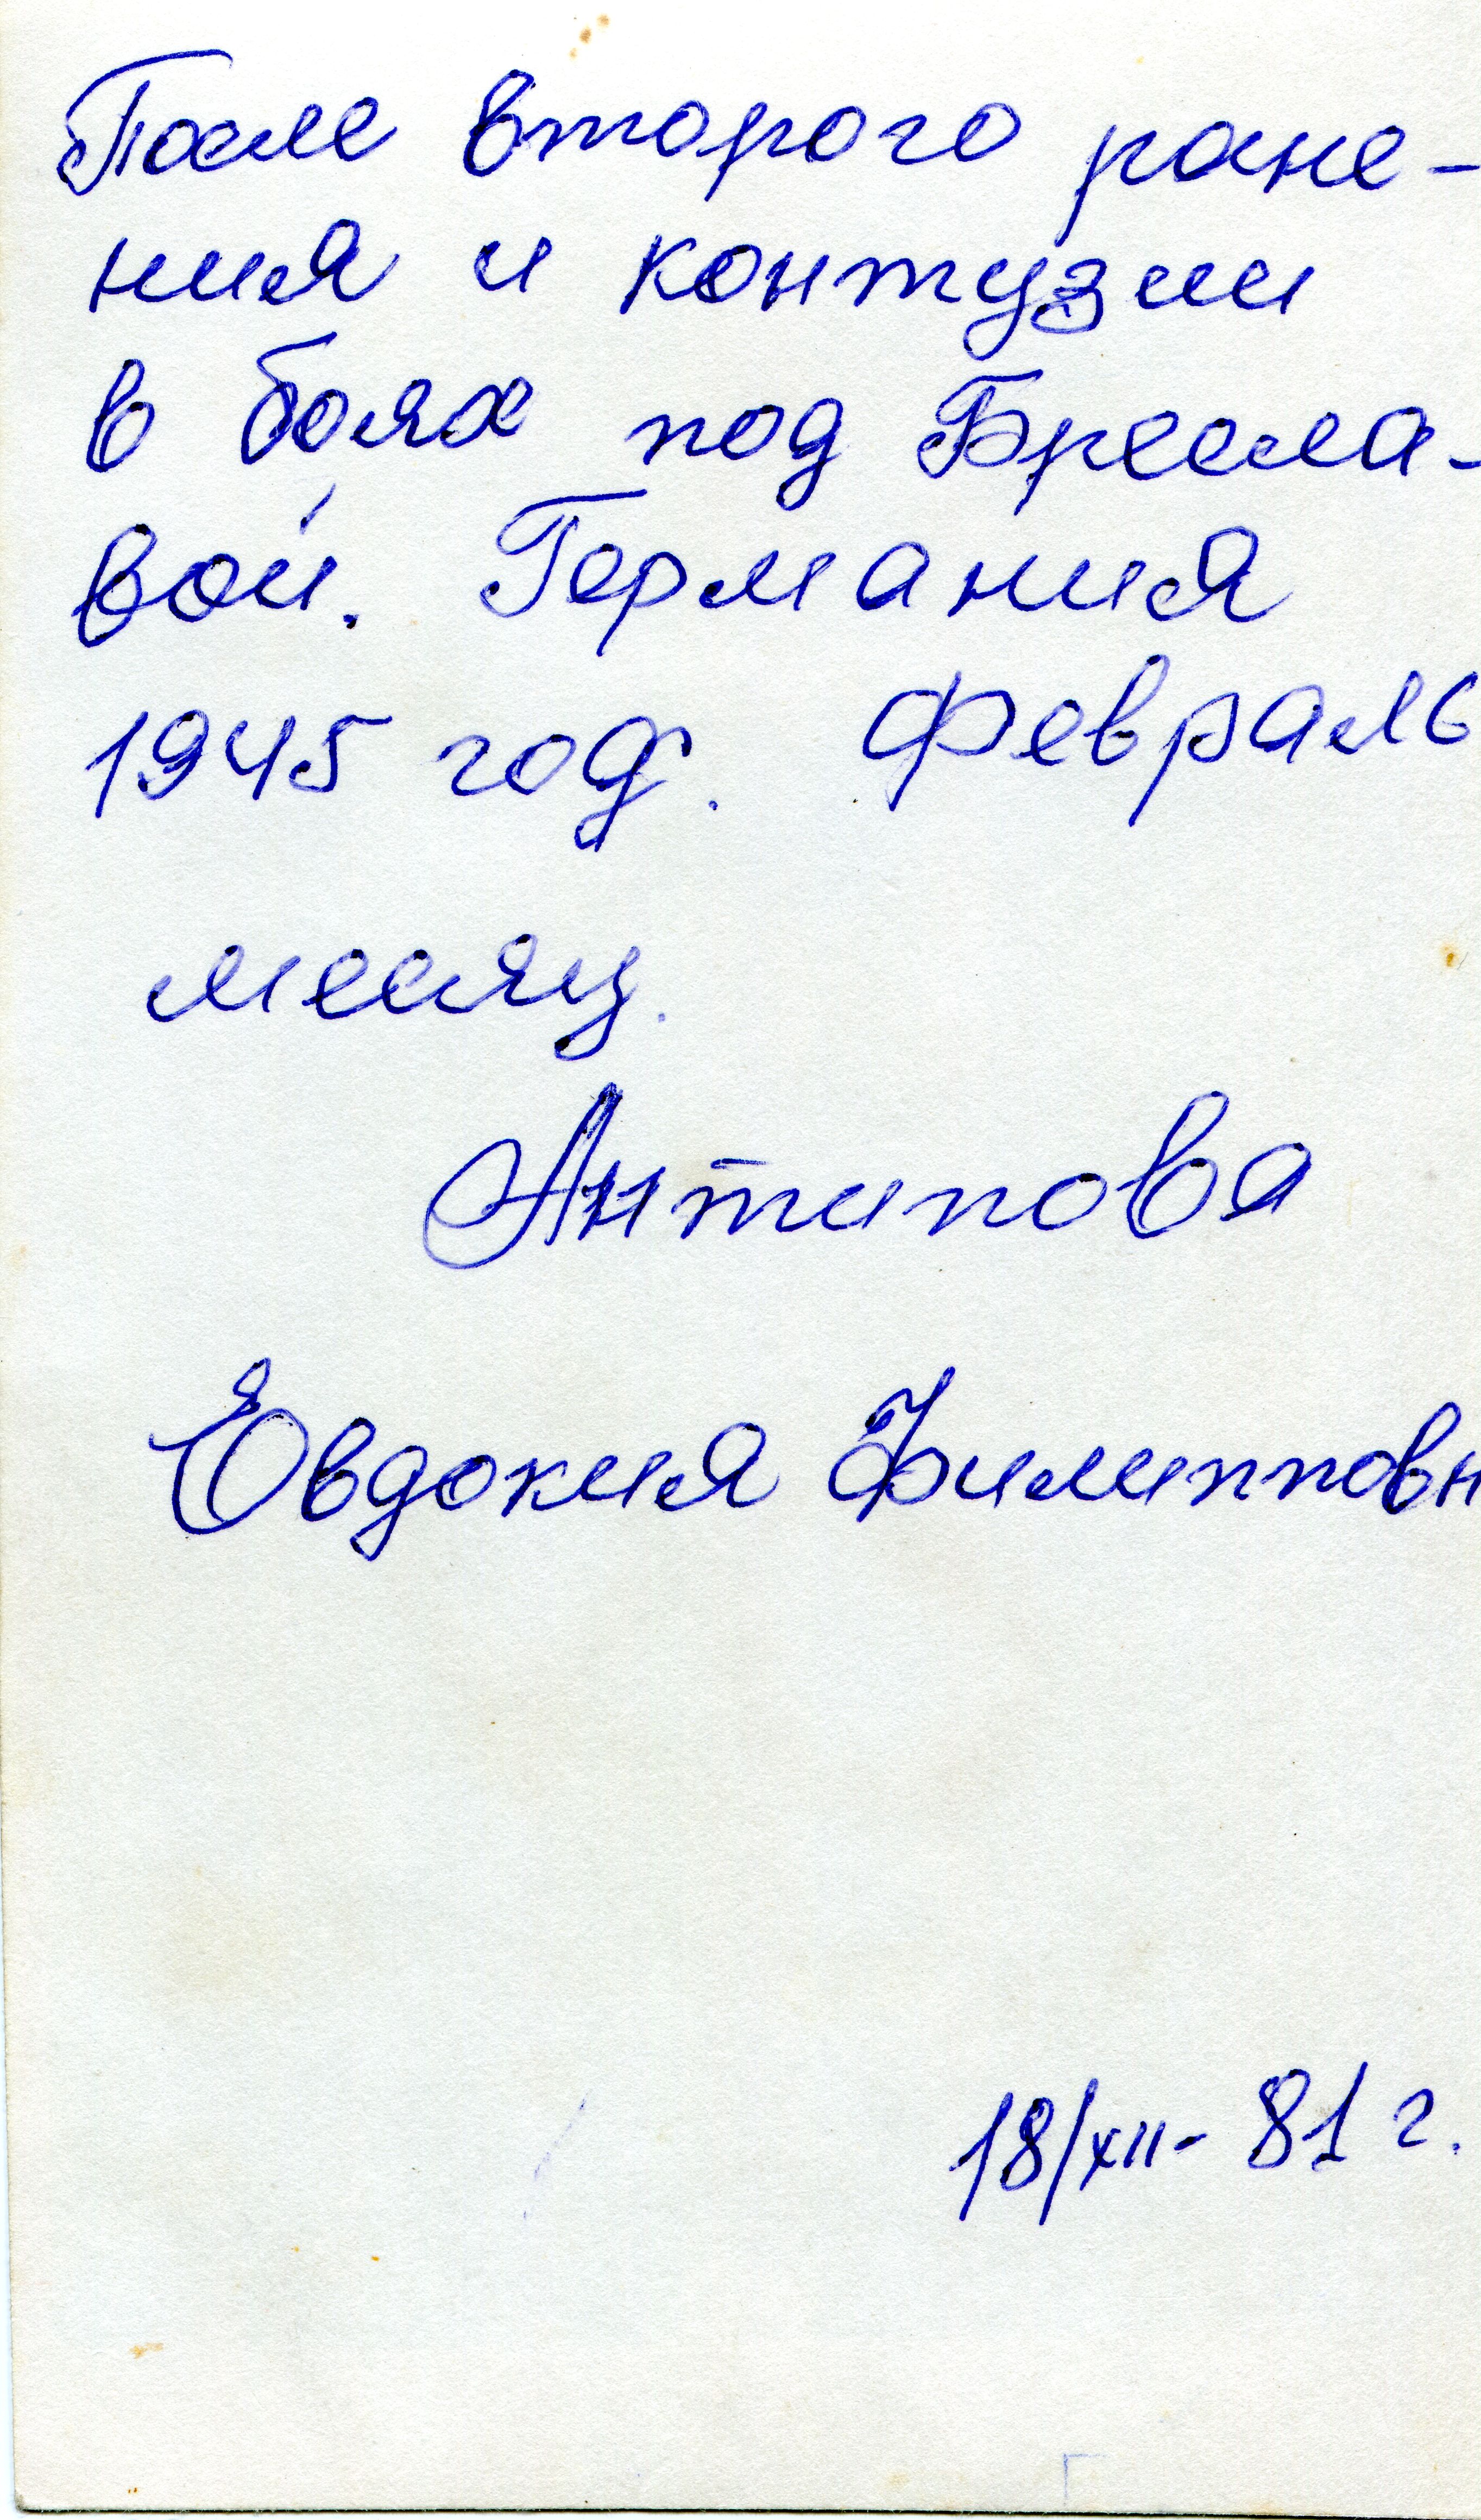 После второго ране-
ния и контузии
в боях под Бресла-
вой. Германия
1945 год. февраль
месяц.
Антипова
Евдокия Филипповн
18/XII - 81 г.